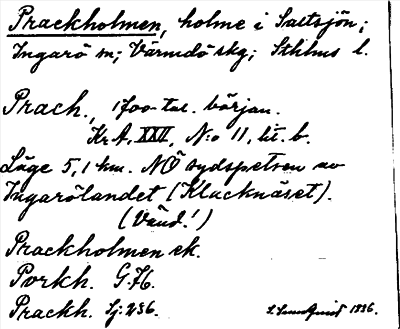 Prackholmen, holme i Saltsjön;
Ingarö sn; Värmdö skg; Sthlms l.
Prach., 1700-tal. början.
Kr A, XXII, N:o 11, lit. b.
Läge 5,1 km. NÖ sydspetsen av
Ingarölandet (Klacknäset).
(Vänd!)
Prackholmen ek.
Porkh. G.H.
Prackh. Sj: 236.
1936.